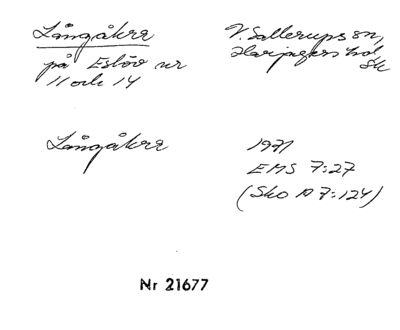 Långåkra
på Eslöv nr
11 och 14
V. Sallerups sn,
Harjagers hd
Sk
Långåkra
1971
EMS 7:27
(Sko A 7:124)
Nr 21677